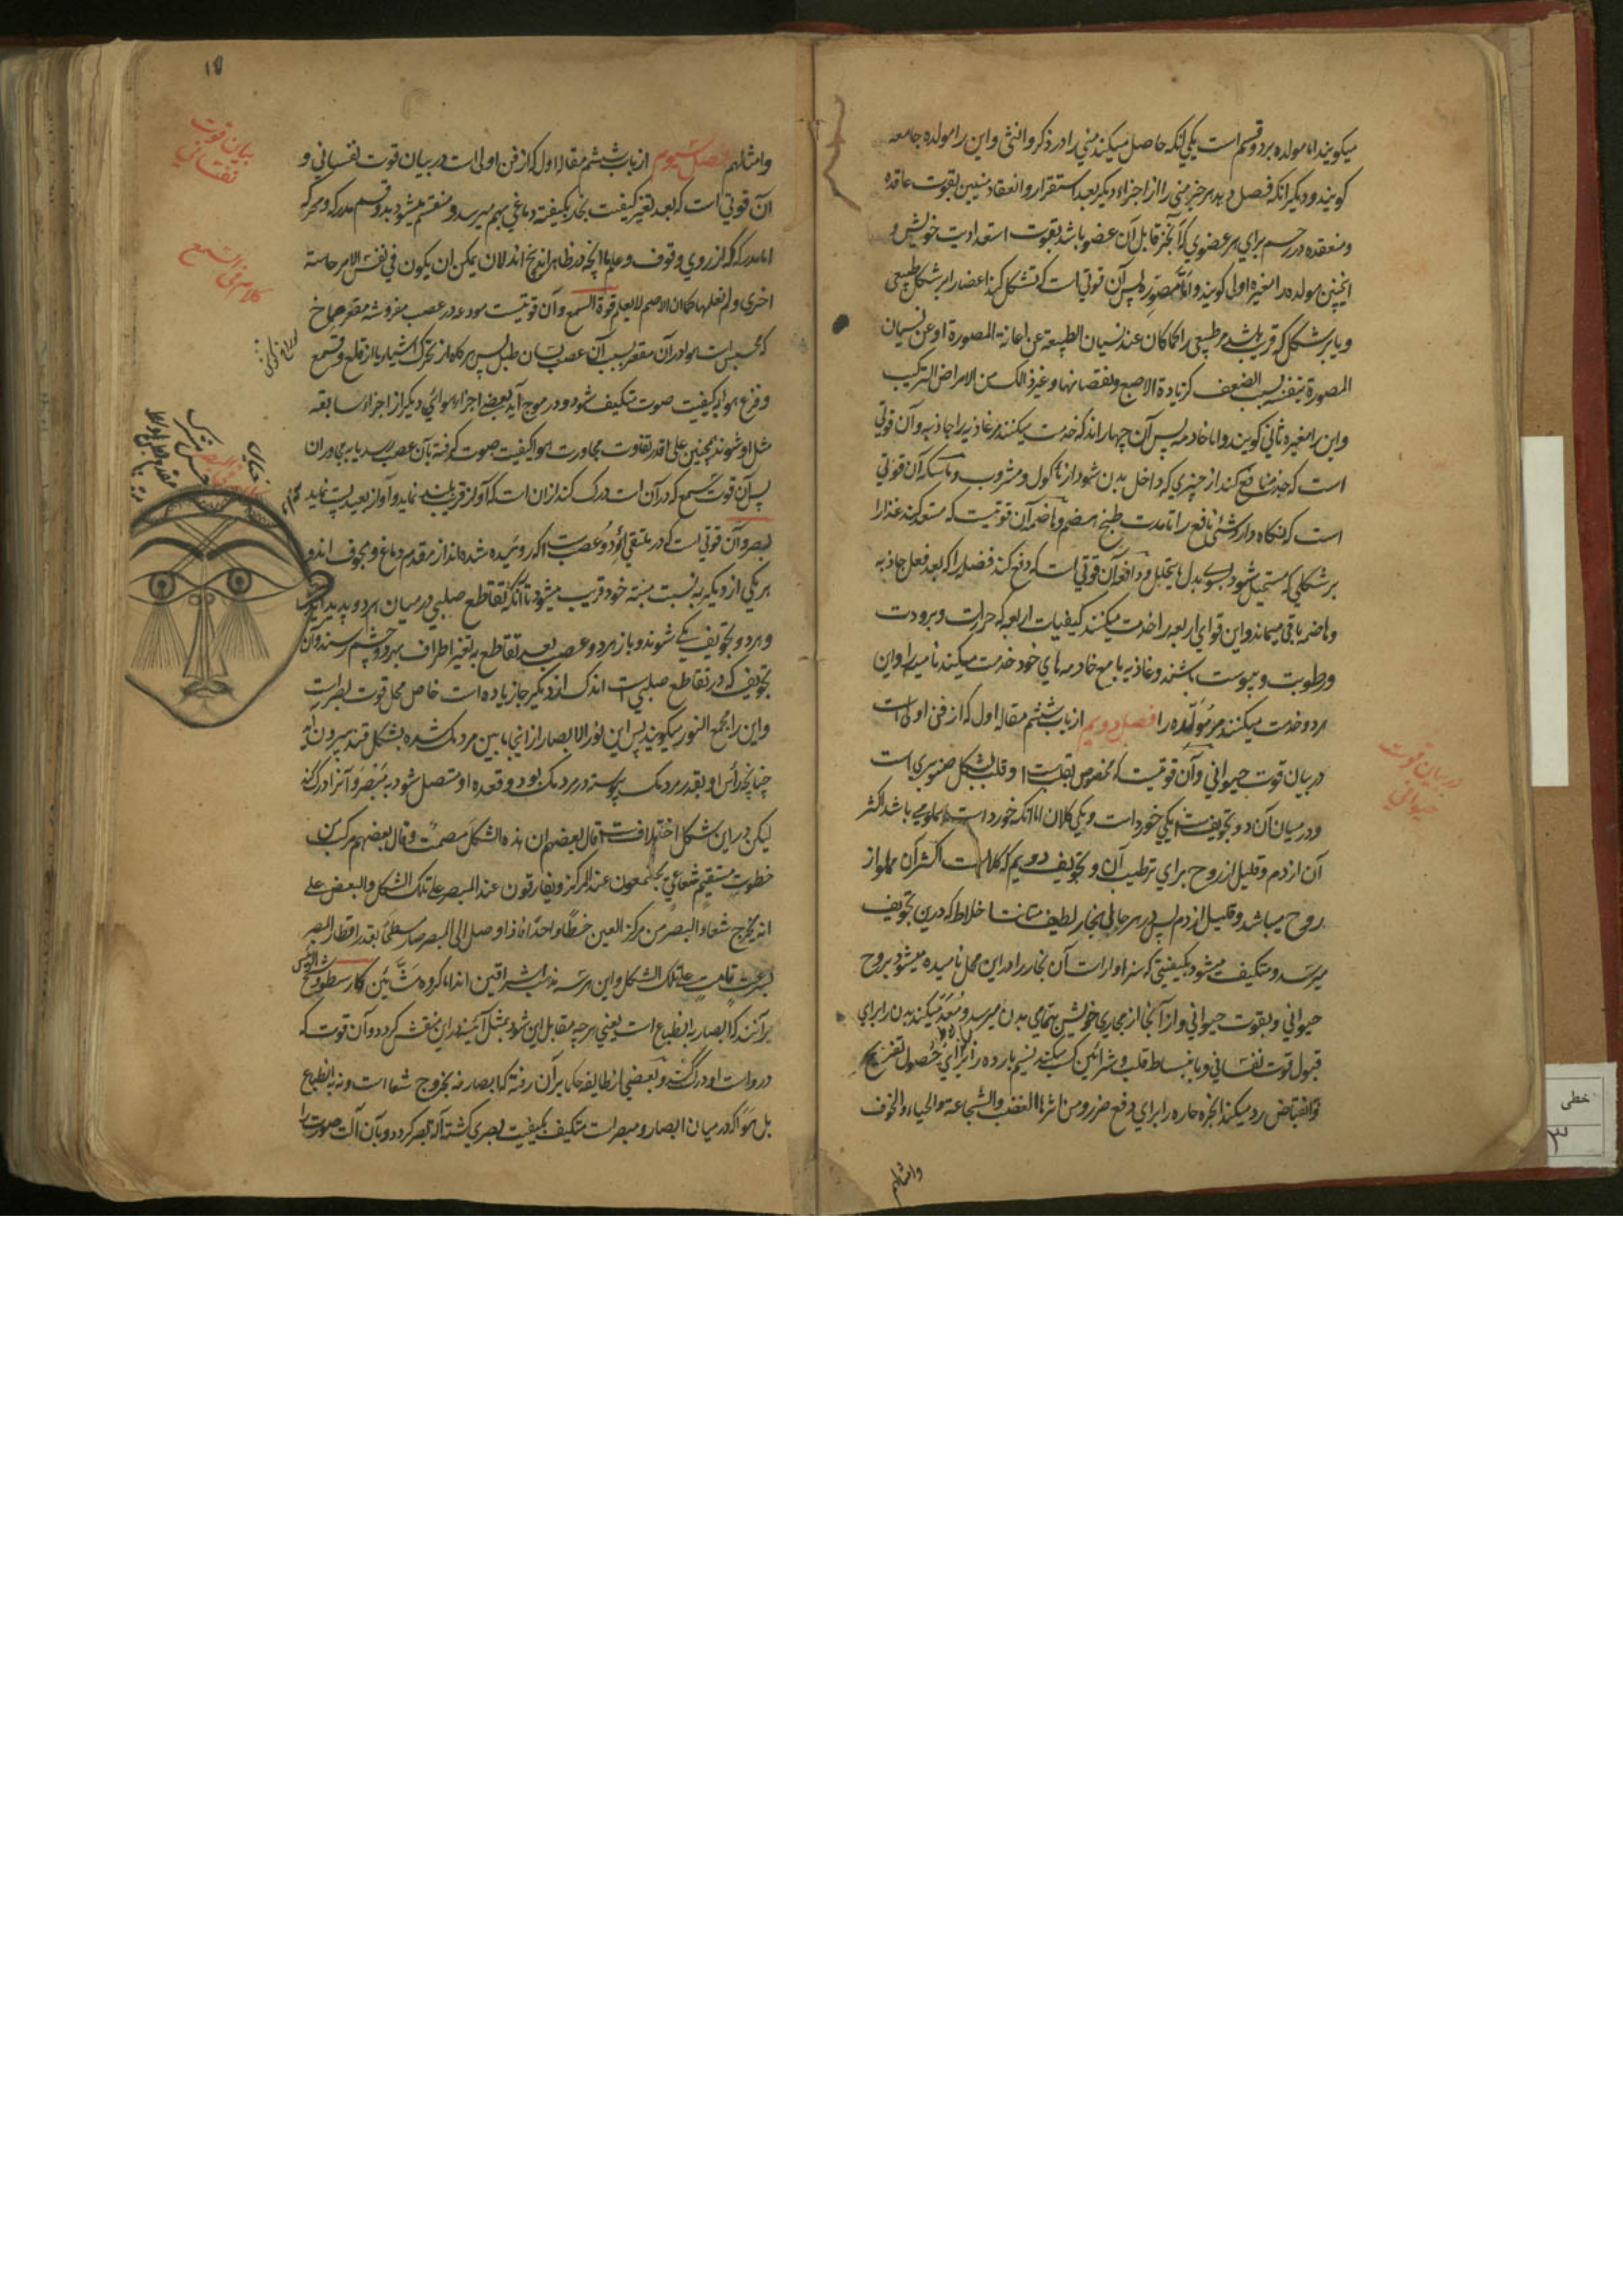 میکویند اما مولده بر دو قسم است یکی انکه حاصل میکند منی را در ذکر و انثی و این را مولده جامعه
کویند و دیکر انکه فصل دهد هر جز منی را از اجزاء دیکر بعد استقرار و انعقاد منیین بقوت عاقده
و منعقده در رحم برای هر عضوی که آنجز قابل آن عضو باشد بقوت استعدادیت خویش و
اینچنین مولده را مغیره اولی کویند و اما مصوره پس آن قوتی است که تشکل کند اعضا را بر شکل طبیعی
و یا بر شکل که قریب باشد مر طبیعی را کما کان عند نسیان الطبیعة عن اعانة المصورة او عن نسیان
المصورة بنفسه بسبب الضعف کزیادة الاصبع و نقصانها و غیر ذالک من الامراض الترکیب
و این را مغیره ثانی کویند و اما خادمه پس آن چهار اند که خدمت میکنند مر غاذیه را جاذبه و آن قوتی
است که جذب منافع کند از چیزی که داخل بدن شود از ماکول و مشروب و ماسکه آن قوتی
است که نکاه دارد شئی نافع را تا مدت طبخ هضم و هاضمه آن قوتیست که مستعد کند غذا را
بر شکلی که مستحیل شود بسوی بدل ما یتحلل و دافعه آن قوتی است که دفع کند فضله را که بعد فعل جاذبه
و هاضمه باقی میماند و این قوای اربعه را خدمت میکنند کیفیات اربعه که حرارت و برودت
و رطوبت و یبوست باشند و غاذیه با مع خادمه های خود خدمت میکند نامیه را و این
هر دو خدمت میکنند مر مولده را فصل دویم از باب ششم مقاله اول که از فن اولی است
در بیان قوت حیوانی و آن قوتیست که مخصوص بقلب است و قلب بشکل صنوبری است
و در میان آن دو تجویف است یکی خورد است و یکی کلان اما انکه خورد است مملو می باشد اکثر
آن از دم و قلیل از روح برای ترطیب آن و تجویف دویم که کلان است اکثر آن مملو از
روح میباشد و قلیل از دم پس در هر حالی بخار لطیف اخلاط که درین تجویف
میرسد و متکیف میشود بکیفیتی که سزاوار است آن بخار را در این محل نامیده میشود بروح
حیوانی و بقوت حیوانی و از آنجا از مجاری خویش بتمامی بدن میرسد و معد میکند بدن را برای
قبول قوت نفسانی و بانبساط قلب و شرائین کسب میکند نسیم بارده را برای حصول تفریح
و بانقباض رد میکند ابخره حاره را برای دفع ضرر و من اثرها الغضب والشجاعة والحیاء والخوف
وامثالهم
در بیان قوت
حیوانی
وامثالهم فصل سیوم از باب ششم مقاله اول که از فن اولی است در بیان قوت نفسانی و
آن قوتی است که بعد تغیر کیفیت بخار بکیفیة دماغی بهم میرسد و منقسم میشود بدو قسم مدرکه و محرکه
اما مدرکه که از روی وقوف و علم ما انچه در ظاهر اند پنج اند لان یمکن ان یکون فی نفس الامر حاسة
اخری و لم نعلمها کما ان الاصم لا یعلم قوة السمع و آن قوتیست مودعه در عصب مفروشه مقعر صماخ
که محبس است هوا در آن مقعر بسبب آن عصب بسان طبل پس هر کاه از تحرک اشیاء یا از قلع و قمع
و قرع هوا بکیفیت صوت متکیف شود و در موج آید بعضی اجزاء هوائی دیکر از اجزاء سابقه
مثل او شوند همچنین علی قدر تفاوت مجاورت هوا کیفیت صوت کرفته بآن عصب رسد یا به مجاور ان
پس آن قوت سمع که در آن است درک کند از ان است که آواز قریب بلند نماید و آواز بعید پست نماید
بصر و آن قوتی است که در ملتقی دو عصب است که روئیده شده اند از مقدم دماغ و مجوف اند و
هر یکی از دیکر به نسبت منبته خود قریب میشود تا آنکه تقاطع صلیبی در میان هر دو پدید آید
و هر دو تجویف یکی شوند و باز هر دو عصب بعد تقاطع بر تغیر اطراف بهر دو چشم رسند و آن
تجویف که در تقاطع صلیبی است اندک از دیکر جا زیاده است خاص محل قوت بصر است
و این را مجمع النور میکویند پس این نور الابصار از انجا مابین مردمک شده بشکل قند بیرون آید
چنانچه رأس او بقدر مردمک پیوسته در مردمک بود و قعده او متصل شود به مبصر و آنرا درک کند
لیکن در این شکل اختلاف است قال بعضهم ان هذه الشکل مصمت و قال بعضهم مرکب من
خطوط مستقیم شعاعی یجتمعون عند المرکز و یفارقون عند المبصر علی تلک الشکل و البعض علی
انه یخرج شعاء البصر من مرکز العین خطا واحدا فاذا وصل الی المبصر صار سطحا بقدر اقطار البصر
بسرعت علی تلک الشکل و این هر سه مذهب اشراقین اند اما کروه مشائین
بر آنند که ابصار به انطباع است یعنی هر چه مقابل این شود بمثل آئینه در این منقش کردد و آن قوت که
در و است او درک کند و بعضی از طایفه حکما بر آن رفته که ابصار نه بخروج شعا است و نه به انطباع
بل هوا که در میان ابصار و مبصر است متکیف بکیفیت بصری کشته آله بصر کردد و بآن آلت صورت را
بیان قوت
نفسانی
کلام فی السمع